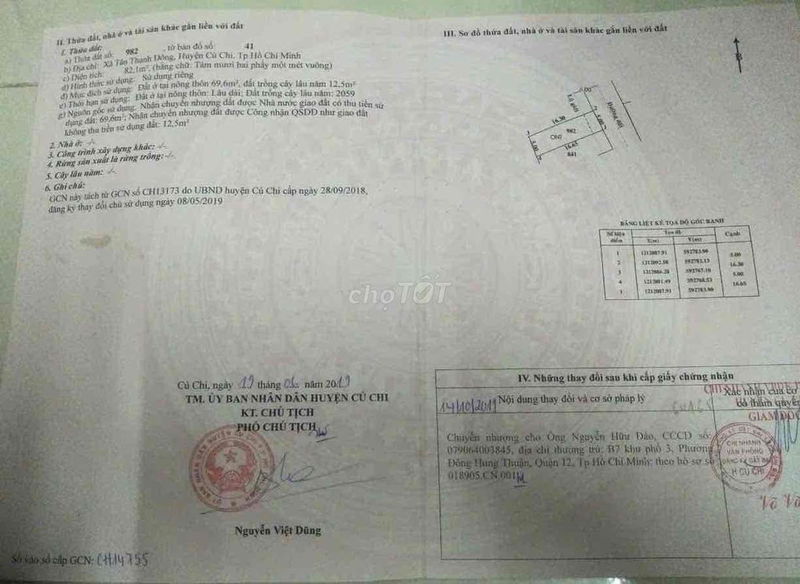 II. Thửa đất, nhà ở và tài sản khác gắn liền với đất
1. Thửa đất:
a) Thửa đất số: 982 , tờ bản đồ số 41
b) Địa chỉ: Xã Tân Thạnh Đông, Huyện Củ Chi, Tp Hồ Chí Minh
c) Diện tích: 82,1m² (bằng chữ: Tám mươi hai phẩy một mét vuông)
d) Hình thức sử dụng: Sử dụng riêng
đ) Mục đích sử dụng: Đất ở tại nông thôn 69,6m², đất trồng cây lâu năm 12,5m²
e) Thời hạn sử dụng: Đất ở tại nông thôn: Lâu dài; Đất trồng cây lâu năm: 2059
g) Nguồn gốc sử dụng: Nhận chuyển nhượng đất được Nhà nước giao đất có thu tiền sử
dụng đất: 69,6m²; Nhận chuyển nhượng đất được Công nhận QSDĐ như giao đất
không thu tiền sử dụng đất: 12,5m²
2. Nhà ở: -/-
3. Công trình xây dựng khác: -/-
4. Rừng sản xuất là rừng trồng: -/-
5. Cây lâu năm: -/-
6. Ghi chú:
GCN này tách từ GCN số CH13173 do UBND huyện Củ Chi cấp ngày 28/09/2018,
đăng ký thay đổi chủ sử dụng ngày 08/05/2019
Củ Chi, ngày 19 tháng năm 2019
TM. ỦY BAN NHÂN DÂN HUYỆN CỦ CHI
KT. CHỦ TỊCH
PHÓ CHỦ TỊCH
Nguyễn Việt Dũng
Số vào sổ cấp GCN: CH14755
III. Sơ đồ thửa đất, nhà ở và tài sản khác gắn liền với đất
B
Lộ giới
Đường đất
16.30
5.00
ONT
982
5.00
16.65
841
BẢNG LIỆT KÊ TỌA ĐỘ GÓC RANH
Số hiệu điểm Tọa độ Cạnh
X(m) Y(m)
1 1212087.91 592783.90
5.00
2 1212092.58 592782.13
16.30
3 1212086.28 592767.10
5.00
4 1212081.49 592768.53
16.65
1 1212087.91 592783.90
chợTỐT
IV. Những thay đổi sau khi cấp giấy chứng nhận
14/10/2019 Nội dung thay đổi và cơ sở pháp lý
Xác nhận của cơ
có thẩm quyền
GIÁM ĐỐC
Chuyển nhượng cho Ông Nguyễn Hữu Đảo, CCCD số:
079064003845, địa chỉ thường trú: B7 khu phố 3, Phường
Đông Hưng Thuận, Quận 12, Tp Hồ Chí Minh; theo hồ sơ số
018905.CN.001
CHI NHÁNH
VĂN PHÒNG
ĐĂNG KÝ ĐẤT ĐAI
H.CỦ CHI